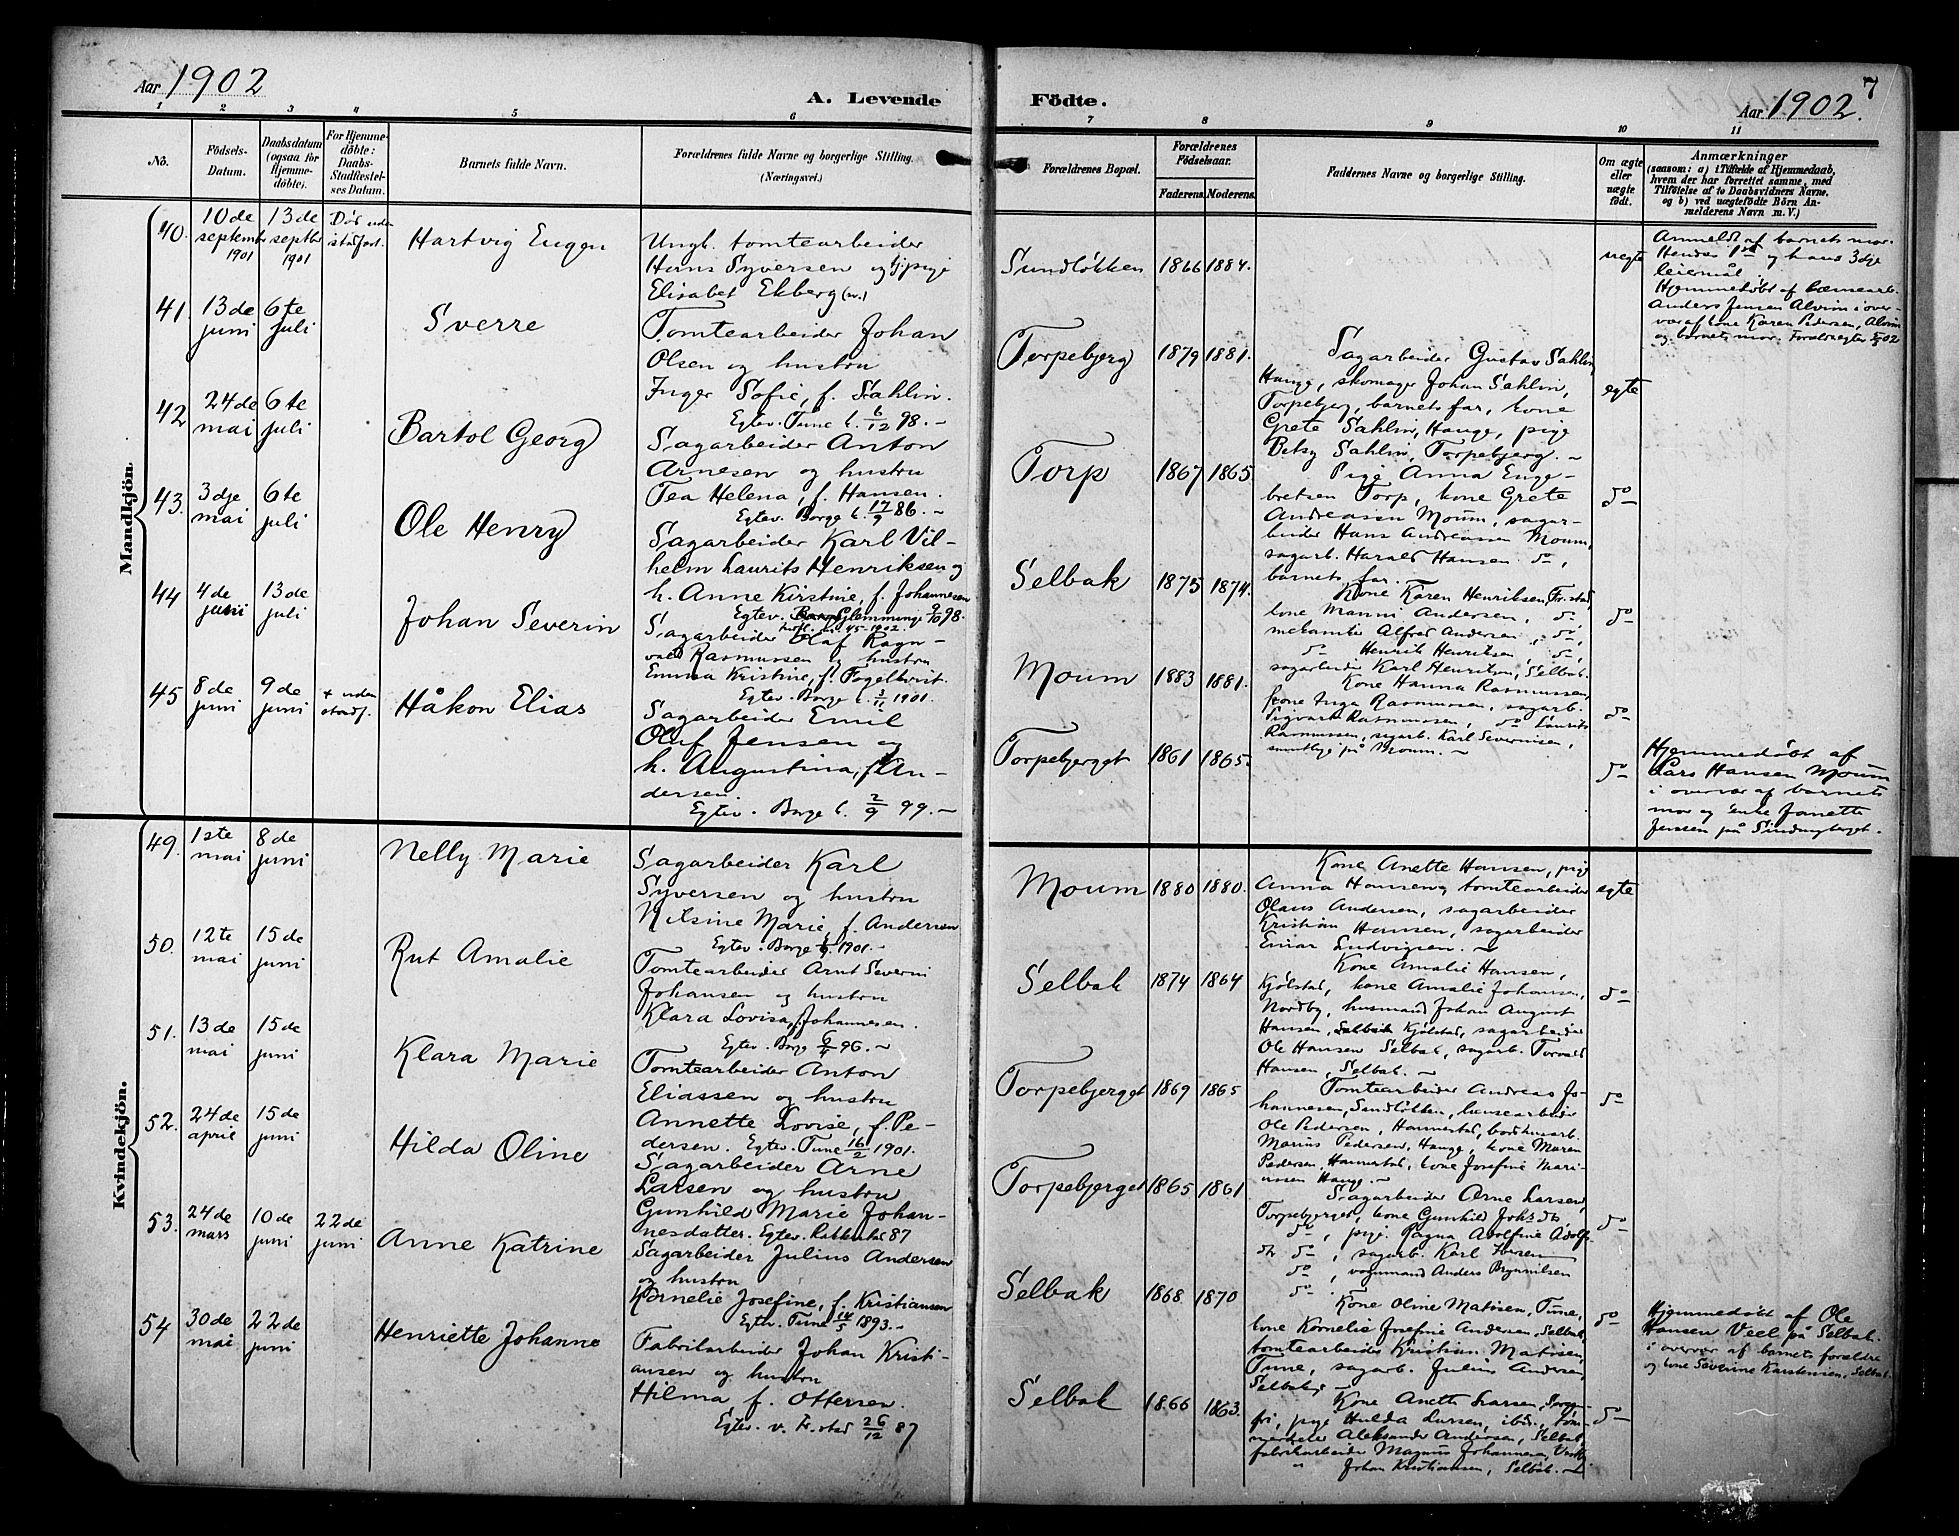 Aar 1902
A. Levende
1 2 3 4 5 6
No.
Födsels-
Datum.
Daabsdatum
(ogsaa for
Hjemme-
döbte).
For Hjemme-
döbte:
Daabs-
Stadfæstel-
ses Datum.
Barnets fulde Navn.
Forældrenes fulde Navne og borgerlige Stilling.
(Næringsvei.)
Mandkjön.
40. 10de september 1901 13de septbr 1901 Död uden stadfæst.
Hartvig Eugen
Ungk. tomtearbeider
Hans Syversen og pige
Elisabet Ekberg
41. 13de juni 6te juli
Sverre
Tomtearbeider Johan
Olsen og hustru
Inger Sofie, f. Sahlin.
Egtev. Tune k. 6/12 98. -
42 24de mai 6te juli
Bartol Georg
Sagarbeider Anton
Arnesen og hustru
Tea Helena, f. Hansen.
Egtev. Borge k. 17/9 86. -
43. 3dje mai 6te juli
Ole Henry
Sagarbeider Karl Vil-
helm Laurits Henriksen og
h. Anne Kirstine, f. Johannesen
Egtev. Glemminge 98.
44 4de juni 13de juli
Johan Severin
Sagarbeider Olaf Ragn-
vald Rasmussen og hustru
Emma Kristine, f. Fagelkvist.
Egtev. Borge k. 1901.
45 8de juni 9de juni + uden stadf.
Håkon Elias
Sagarbeider Emil
Oluf Jensen og
h. Augustina, f. An-
dersen
Egtev. Borge k. 2/9 99. -
Kvindekjön.
49. 1ste mai 8de juni
Nelly Marie
Sagarbeider Karl
Syversen og hustru
Nilsine Marie, f. Andersen
Egtev. Borge 1901. -
50. 12te mai 15de juni
Rut Amalie
Tomtearbeider Arnt Severin
Johansen og hustru
Klara Lovisa, f. Johannesen.
Egtev. Borge 96. -
51. 13de mai 15de juni
Klara Marie
Tomtearbeider Anton
Eliassen og hustru
Annette Lovise, f. Pe-
dersen. Egtev. Tune 16/2 1901.
52. 24de april 15de juni
Hilda Oline
Sagarbeider Arne
Larsen og hustru
Gunhild Marie Johan-
nesdatter. Egtev. Rakkestad 87
53. 24de mars 10de juni 22de juni
Anne Katrine
Sagarbeider Julius Andersen
og hustru
Kornelie Josefine, f. Kristiansen
Egtev. Tune 14/5 1893. -
54 30de mai 22de juni
Henriette Johanne
Fabrikarbeider Johan Kristi-
ansen og hustru
Hilma, f. Ottersen.
Egtev. v. Fr.stad 26/12 87
7
Födte.
Aar 1902.
7 8 9 10 11
Forældrenes Bopæl.
Forældrenes
Födselsaar.
Faderens. Moderens.
Faddernes Navne og borgerlige Stilling.
Om ægte
eller
uægte
födt.
Anmærkninger
(saasom: a) i Tilfælde af Hjemmedaab,
hvem der har forrettet samme, med
Tilföielse af to Daabsvidners Navne.
og b) ved uægtefödte Börn An-
melderens Navn m. V.)
Sundløkken 1866 1884. uegte
Anmeldt af barnets mor.
Hendes 1ste og hans 3dje
leiermål.
Hjemmedöbt af
Anders Jensen Alvim i over-
vær af kone Karen Pedersen, Alvim
og barnets mor.
Torpebjerg 1879 1881. egte
Sagarbeider Gustav Sahlin,
Hauge, skomager Johan Sahlin,
Torpebjerg, barnets far, kone
Grete Sahlin, Hauge, pige
Betsy Sahlin, Torpebjerg. -
Torp 1867 1865 do
Pige Anna Enge-
bretsen Torp, kone Grete
Andreasen Moum, sagar-
beider Hans Andreasen Moum,
sagarb. Harald Hansen do,
barnets far.
Selbak 1875 1874. do
Kone Karen Henriksen, Fr.stad,
kone Manni Andersen, do
Alfred Andersen, do,
do Henrik Henriksen do,
sagarbeider Karl Henriksen, Selbak.
Moum 1883 1881. do
Kone Hanna Rasmussen,
kone Inga Rasmussen, sagarb.
Sigvart Rasmussen, do Laurits
Rasmussen, sagarb. Karl Severinsen,
samtlige på Moum. -
Torpebjerget 1861 1865. do
Hjemmedöbt af
Lars Hansen Moum
i overvær af barnets
mor og enke Janette
Jensen på
Moum 1880 1880. egte
Kone Anette Hansen, pige
Anna Hansen, tomtearbeider
Olaus Andersen, sagarbeider
Kristian Hansen, sagarbeider
Einar Ludvigsen. -
Selbak 1874 1864 do
Kone Amalie Hansen,
Kjølstad, kone Amalie Johansen,
Nordby, husmand Johan August
Hansen, Kjølstad, sagarbeider
Ole Hansen Selbak, sagarb. Torvald
Hansen, Selbak. -
Torpebjerget 1869 1865 do
Tomtearbeider Andreas Jo-
hannesen, Sundløkken,
Ole Pedersen, Hannestad,
Marius Pedersen, Hauge, kone Maren
Pedersen, Hannestad, kone Josefine Mari-
ussen Hauge. -
Torpebjerget 1865 1861 do
Sagarbeider Arne Larsen,
Torpebjerget, kone Gunhild
do, pige Ragna Adolfine
do, sagarb. Karl
do, Anders Brynnilsen
do
Selbak 1868 1870 do
Kone Oline Matisen, Tune,
kone Kornelie Josefine Andersen, Selbak,
tomtearbeider Kristian Matisen,
Tune, sagarb. Julius Andersen,
Selbak. -
Hjemmedöbt af Ole
Hansen Veel på Selbak.
i overvær af barnets forældre
og kone Severine Karstensen, Selbak.
Selbak 1866 1863. do
Kone Anette Larsen,
pige Hulda Larsen, ibd.,
Aleksander Andersen, Selbak,
fabrikarbeider Magnus Johannesen,
" Johan Kristiansen, Selbak. -